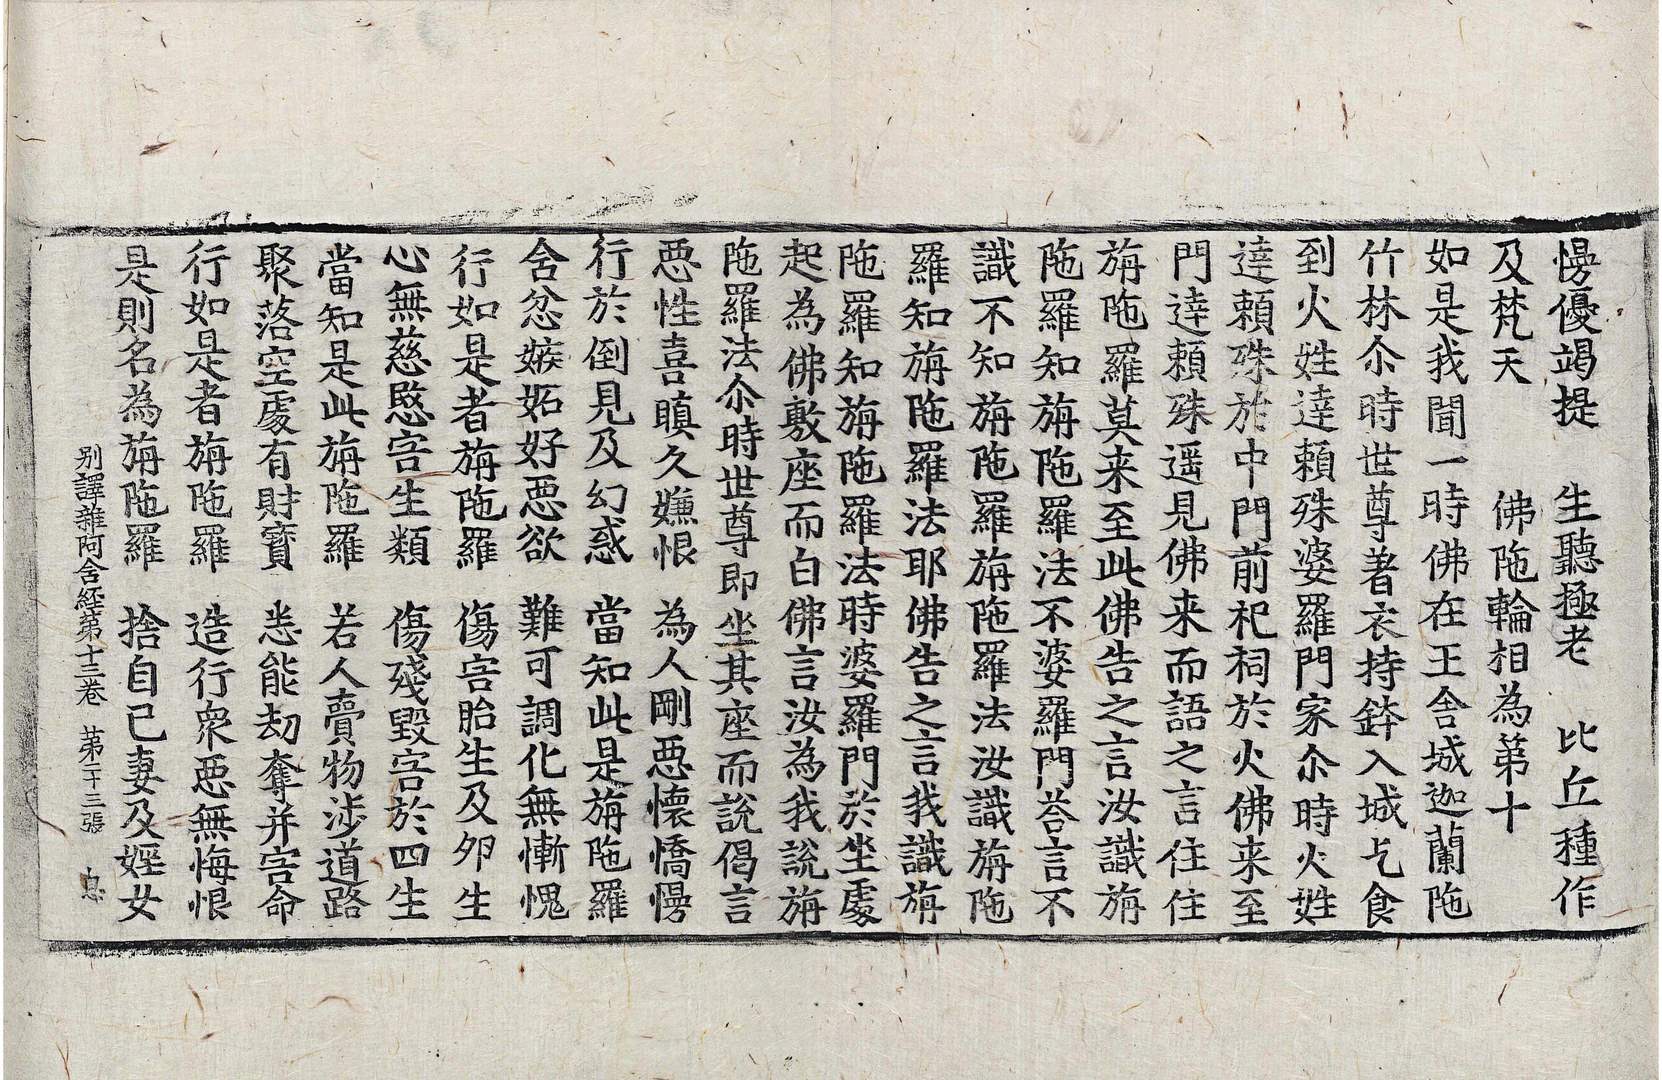 慢優竭提　生聽極老　比丘種作
及梵天　　佛陁輪相為第十
如是我聞一時佛在王舍城迦蘭陁
竹林尒時世尊著衣持鉢入城乞食
到火姓達頼殊婆羅門家尒時火姓
達頼殊於中門前祀祠於火佛来至
門達頼殊遥見佛来而語之言住住
旃陁羅莫来至此佛告之言汝識旃
陁羅知旃陁羅法不婆羅門荅言不
識不知旃陁羅旃陁羅法汝識旃陁
羅知旃陁羅法耶佛告之言我識旃
陁羅知旃陁羅法時婆羅門於坐處
起為佛敷座而白佛言汝為我說旃
陁羅法尒時世尊即坐其座而說偈言
惡性喜瞋久嫌恨　為人剛惡懷憍慢
行於倒見及幻惑　當知此是旃陁羅
含忿嫉妬好惡欲　難可調化無慚愧
行如是者旃陁羅　傷害胎生及卵生
心無慈愍害生類　傷殘毀害於四生
當知是此旃陁羅　若人賣物涉道路
聚落空處有財寶　悉能劫奪并害命
行如是者旃陁羅　造行衆惡無悔恨
是則名為旃陁羅　捨自己妻及婬女
别譯雜阿含經第十三卷　第二十三張　息